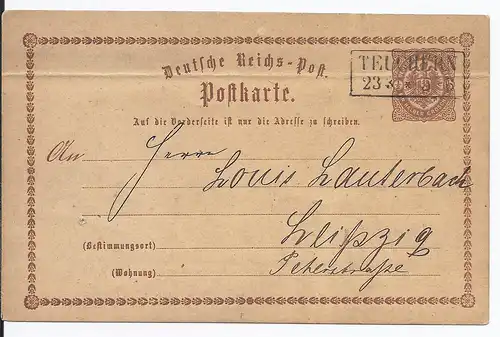 TEUCHERN
23
Deutsche Reichs-Post.
Postkarte.
Auf die Vorderseite ist nur die Adresse zu schreiben.
An Herrn
Louis Lauterbach
Leipzig
(Bestimmungsort)
Peterstraße
(Wohnung)